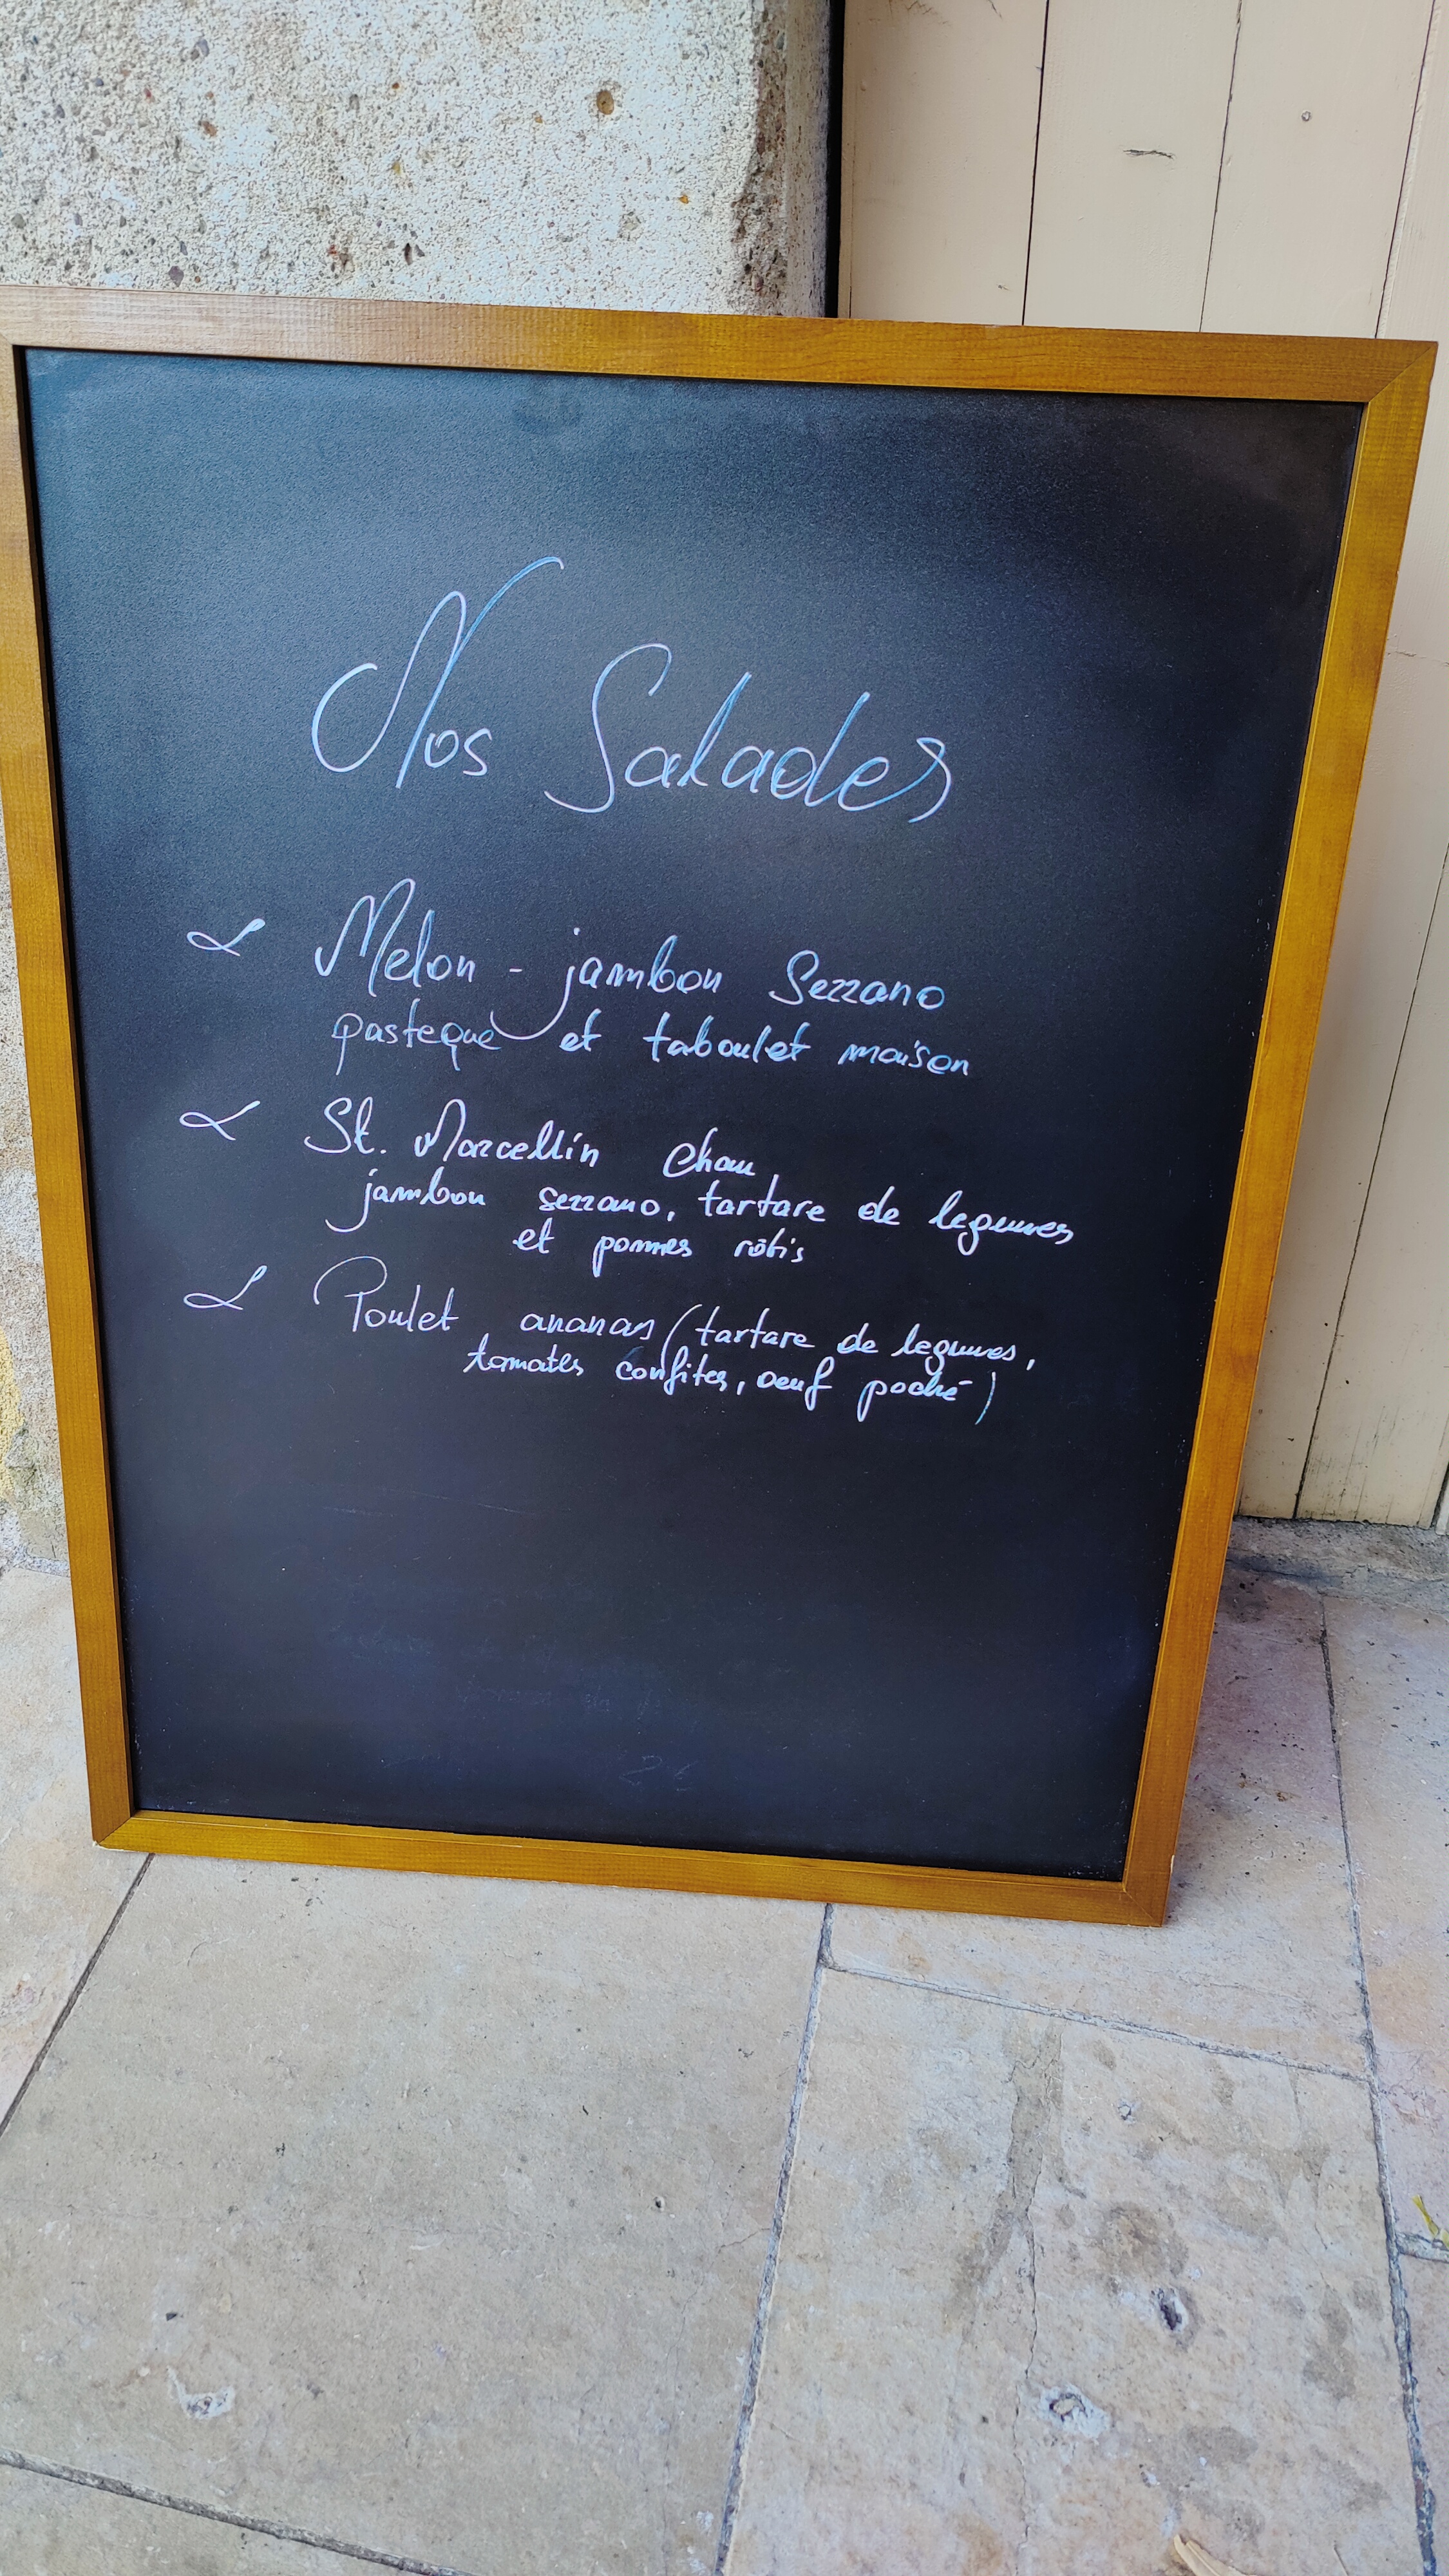 Nos Salades
Melon - jambon Sezzano
pasteque et taboulet maison
St. Marcellin chau,
jambon sezzano, tartare de legumes
et pommes rôtis
Poulet ananas (tartare de legumes,
tomates confites, oeuf poché)
2€